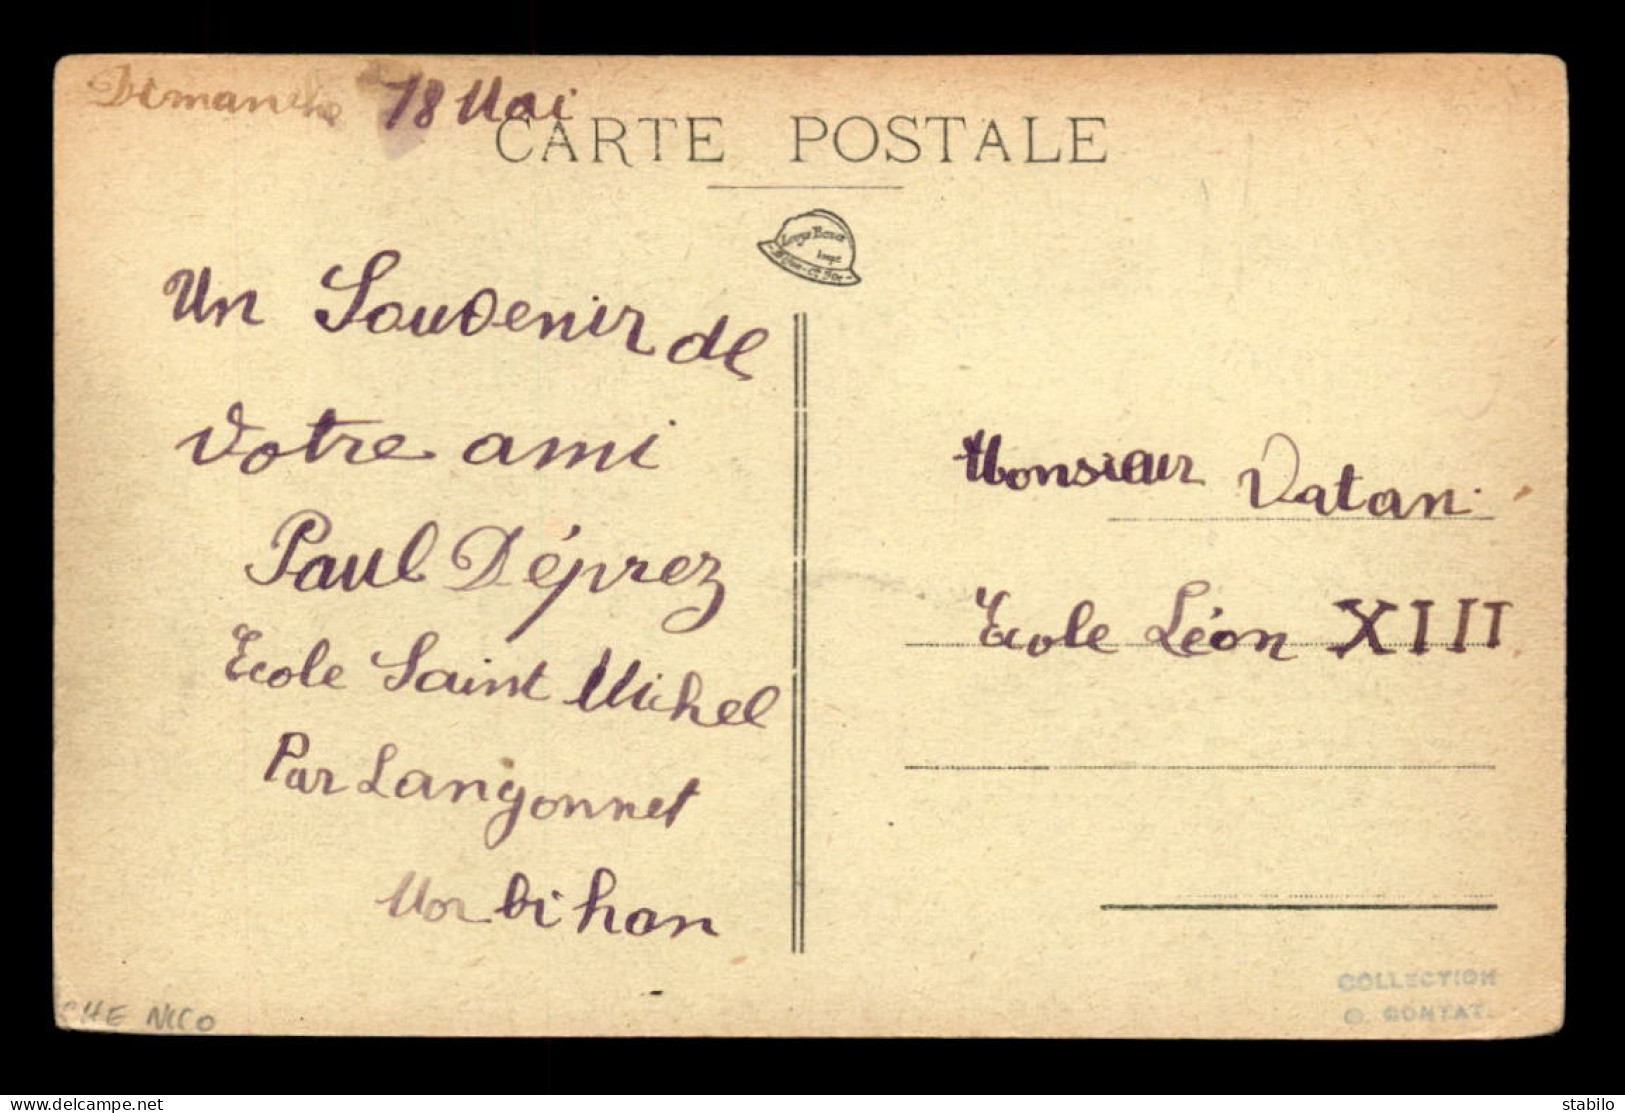 Dimanche 18 Mai
CARTE POSTALE
Un Souvenir de
votre ami
Paul Déprez
Ecole Saint Michel
Par Langonnet
Morbihan
Monsieur Vatan
Ecole Léon XIII
COLLECTION
G. GONTAT.
NICO
stabilo